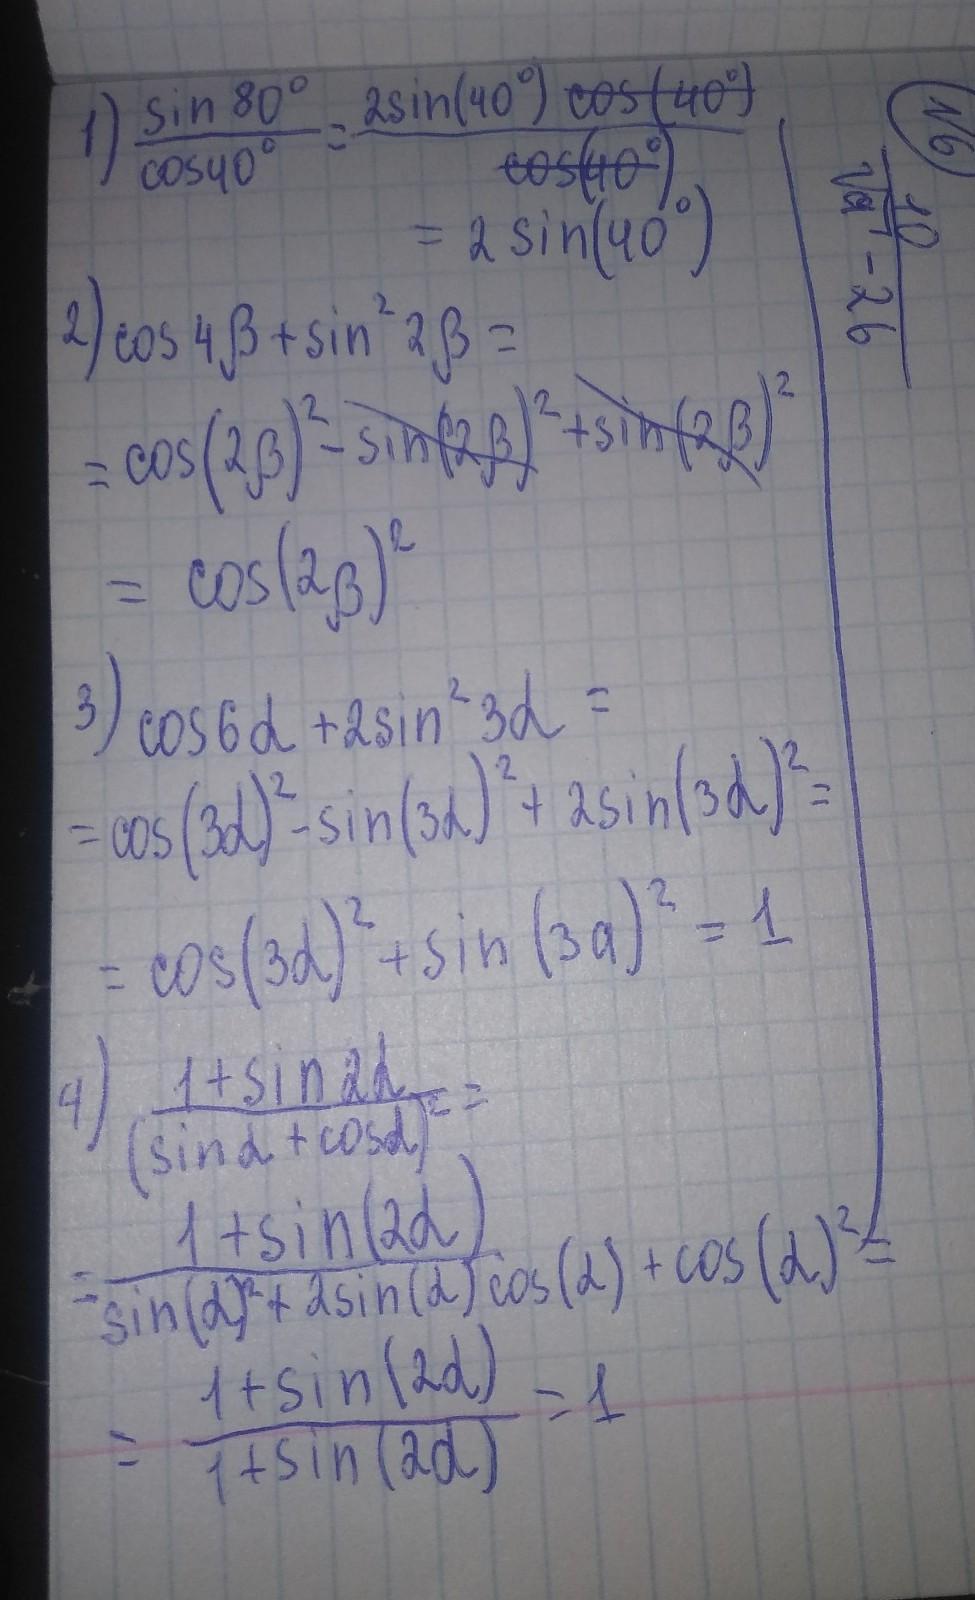 1) sin 80° / cos 40° = 2sin(40°) cos(40°) / cos(40°)
= 2 sin(40°)
2) cos 4β + sin² 2β =
= cos(2β)² - sin(2β)² + sin(2β)²
= cos(2β)²
3) cos 6α + 2sin² 3α =
= cos(3α)² - sin(3α)² + 2sin(3α)² =
= cos(3α)² + sin(3a)² = 1
4) 1 + sin 2α / (sin α + cos α)² =
= 1 + sin(2α) / sin(α)² + 2sin(α) cos(α) + cos(α)² =
= 1 + sin(2α) / 1 + sin(2α) = 1